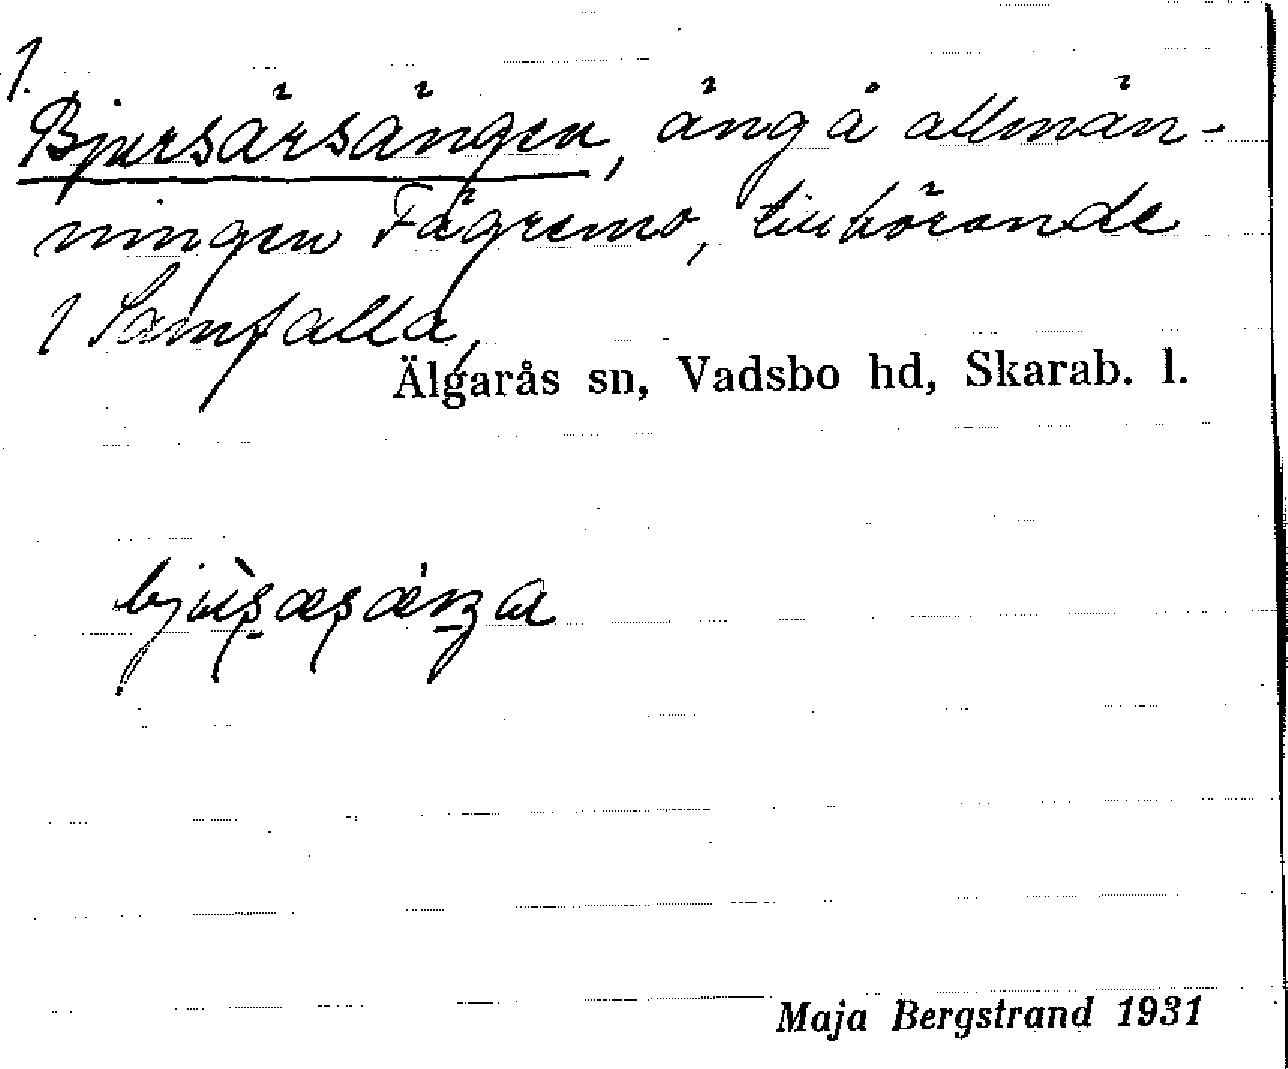 1.
Bjursärsängen, äng å allmän-
ningen Fägremo, tillhörande
1 Samfälla,
Älgarås sn, Vadsbo hd, Skarab. l.
Maja Bergstrand 1931